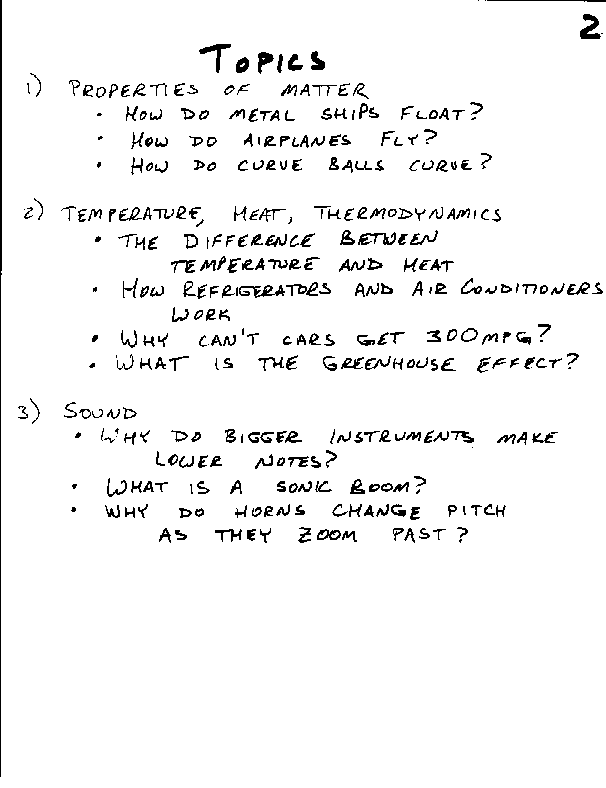 2
TOPICS
1) PROPERTIES OF MATTER
• HOW DO METAL SHIPS FLOAT?
• HOW DO AIRPLANES FLY?
• HOW DO CURVE BALLS CURVE?
2) TEMPERATURE, HEAT, THERMODYNAMICS
• THE DIFFERENCE BETWEEN
TEMPERATURE AND HEAT
• HOW REFRIGERATORS AND AIR CONDITIONERS
WORK
• WHY CAN'T CARS GET 300MPG?
• WHAT IS THE GREENHOUSE EFFECT?
3) SOUND
• WHY DO BIGGER INSTRUMENTS MAKE
LOWER NOTES?
• WHAT IS A SONIC BOOM?
• WHY DO HORNS CHANGE PITCH
AS THEY ZOOM PAST?